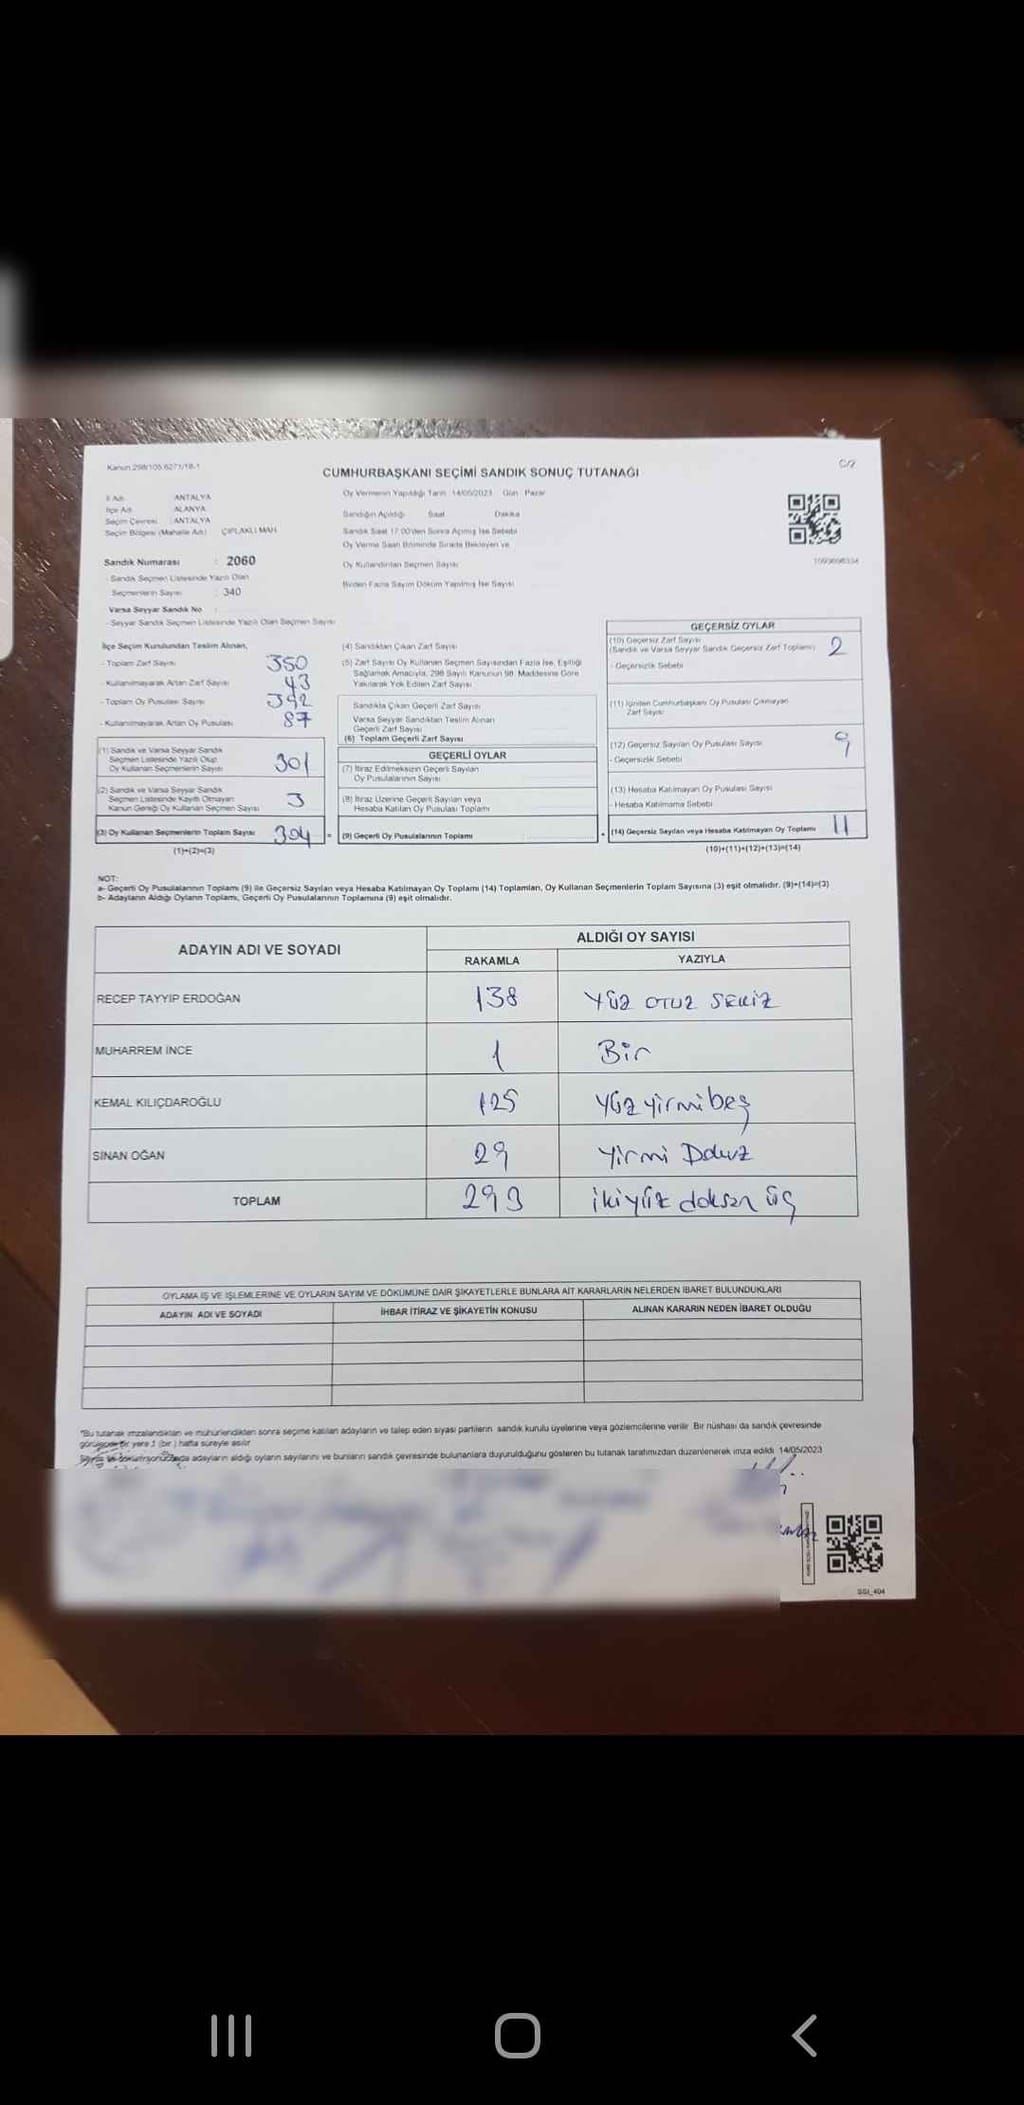 Kanun 298/105 6271/18-1
C/2
CUMHURBAŞKANI SEÇİMİ SANDIK SONUÇ TUTANAĞI
İl Adı ANTALYA
İlçe Adı ALANYA
Seçim Çevresi ANTALYA
Seçim Bölgesi (Mahalle Adı) ÇIPLAKLI MAH
Sandık Numarası : 2060
- Sandık Seçmen Listesinde Yazılı Olan
Seçmenlerin Sayısı : 340
Varsa Seyyar Sandık No :
- Seyyar Sandık Seçmen Listesinde Yazılı Olan Seçmen Sayısı
Oy Vermenin Yapıldığı Tarih 14/05/2023 Gün Pazar
Sandığın Açıldığı Saat Dakika
Sandık Saat 17:00'den Sonra Açılmış İse Sebebi
Oy Verme Saati Bitiminde Sırada Bekleyen ve
Oy Kullandırılan Seçmen Sayısı
Birden Fazla Sayım Döküm Yapılmış İse Sayısı
İlçe Seçim Kurulundan Teslim Alınan,
- Toplam Zarf Sayısı 350
- Kullanılmayarak Artan Zarf Sayısı 43
- Toplam Oy Pusulası Sayısı 392
- Kullanılmayarak Artan Oy Pusulası 87
(1) Sandık ve Varsa Seyyar Sandık
Seçmen Listesinde Yazılı Olup
Oy Kullanan Seçmenlerin Sayısı 301
(2) Sandık ve Varsa Seyyar Sandık
Seçmen Listesinde Kayıtlı Olmayan
Kanun Gereği Oy Kullanan Seçmen Sayısı 3
(3) Oy Kullanan Seçmenlerin Toplam Sayısı 304 =
(1)+(2)=(3)
(4) Sandıktan Çıkan Zarf Sayısı
(5) Zarf Sayısı Oy Kullanan Seçmen Sayısından Fazla İse, Eşitliği
Sağlamak Amacıyla, 298 Sayılı Kanunun 98. Maddesine Göre
Yakılarak Yok Edilen Zarf Sayısı
Sandıkta Çıkan Geçerli Zarf Sayısı
Varsa Seyyar Sandıktan Teslim Alınan
Geçerli Zarf Sayısı
(6) Toplam Geçerli Zarf Sayısı
GEÇERLİ OYLAR
(7) İtiraz Edilmeksizin Geçerli Sayılan
Oy Pusulalarının Sayısı
(8) İtiraz Üzerine Geçerli Sayılan veya
Hesaba Katılan Oy Pusulası Toplamı
(9) Geçerli Oy Pusulalarının Toplamı +
GEÇERSİZ OYLAR
(10) Geçersiz Zarf Sayısı
(Sandık ve Varsa Seyyar Sandık Geçersiz Zarf Toplamı) 2
- Geçersizlik Sebebi
(11) İçinden Cumhurbaşkanı Oy Pusulası Çıkmayan
Zarf Sayısı
(12) Geçersiz Sayılan Oy Pusulası Sayısı 9
- Geçersizlik Sebebi
(13) Hesaba Katılmayan Oy Pusulası Sayısı
- Hesaba Katılmama Sebebi
(14) Geçersiz Sayılan veya Hesaba Katılmayan Oy Toplamı 11
(10)+(11)+(12)+(13)=(14)
NOT:
a- Geçerli Oy Pusulalarının Toplamı (9) ile Geçersiz Sayılan veya Hesaba Katılmayan Oy Toplamı (14) Toplamları, Oy Kullanan Seçmenlerin Toplam Sayısına (3) eşit olmalıdır. (9)+(14)=(3)
b- Adayların Aldığı Oyların Toplamı, Geçerli Oy Pusulalarının Toplamına (9) eşit olmalıdır.
ADAYIN ADI VE SOYADI
ALDIĞI OY SAYISI
RAKAMLA YAZIYLA
RECEP TAYYİP ERDOĞAN 138 YÜZ OTUZ SEKİZ
MUHARREM İNCE 1 Bir
KEMAL KILIÇDAROĞLU 125 Yüz yirmi beş
SİNAN OĞAN 29 Yirmi Dokuz
TOPLAM 293 ikiyüz doksan üç
OYLAMA İŞ VE İŞLEMLERİNE VE OYLARIN SAYIM VE DÖKÜMÜNE DAİR ŞİKAYETLERLE BUNLARA AİT KARARLARIN NELERDEN İBARET BULUNDUKLARI
ADAYIN ADI VE SOYADI İHBAR İTİRAZ VE ŞİKAYETİN KONUSU ALINAN KARARIN NEDEN İBARET OLDUĞU
"Bu tutanak imzalandıktan ve mühürlendikten sonra seçime katılan adayların ve talep eden siyasi partilerin sandık kurulu üyelerine veya gözlemcilerine verilir. Bir nüshası da sandık çevresinde
görülecek bir yere 1 (bir) hafta süreyle asılır
adayların aldığı oyların sayılarını ve bunların sandık çevresinde bulunanlara duyurulduğunu gösteren bu tutanak tarafımızdan düzenlenerek imza edildi 14/05/2023